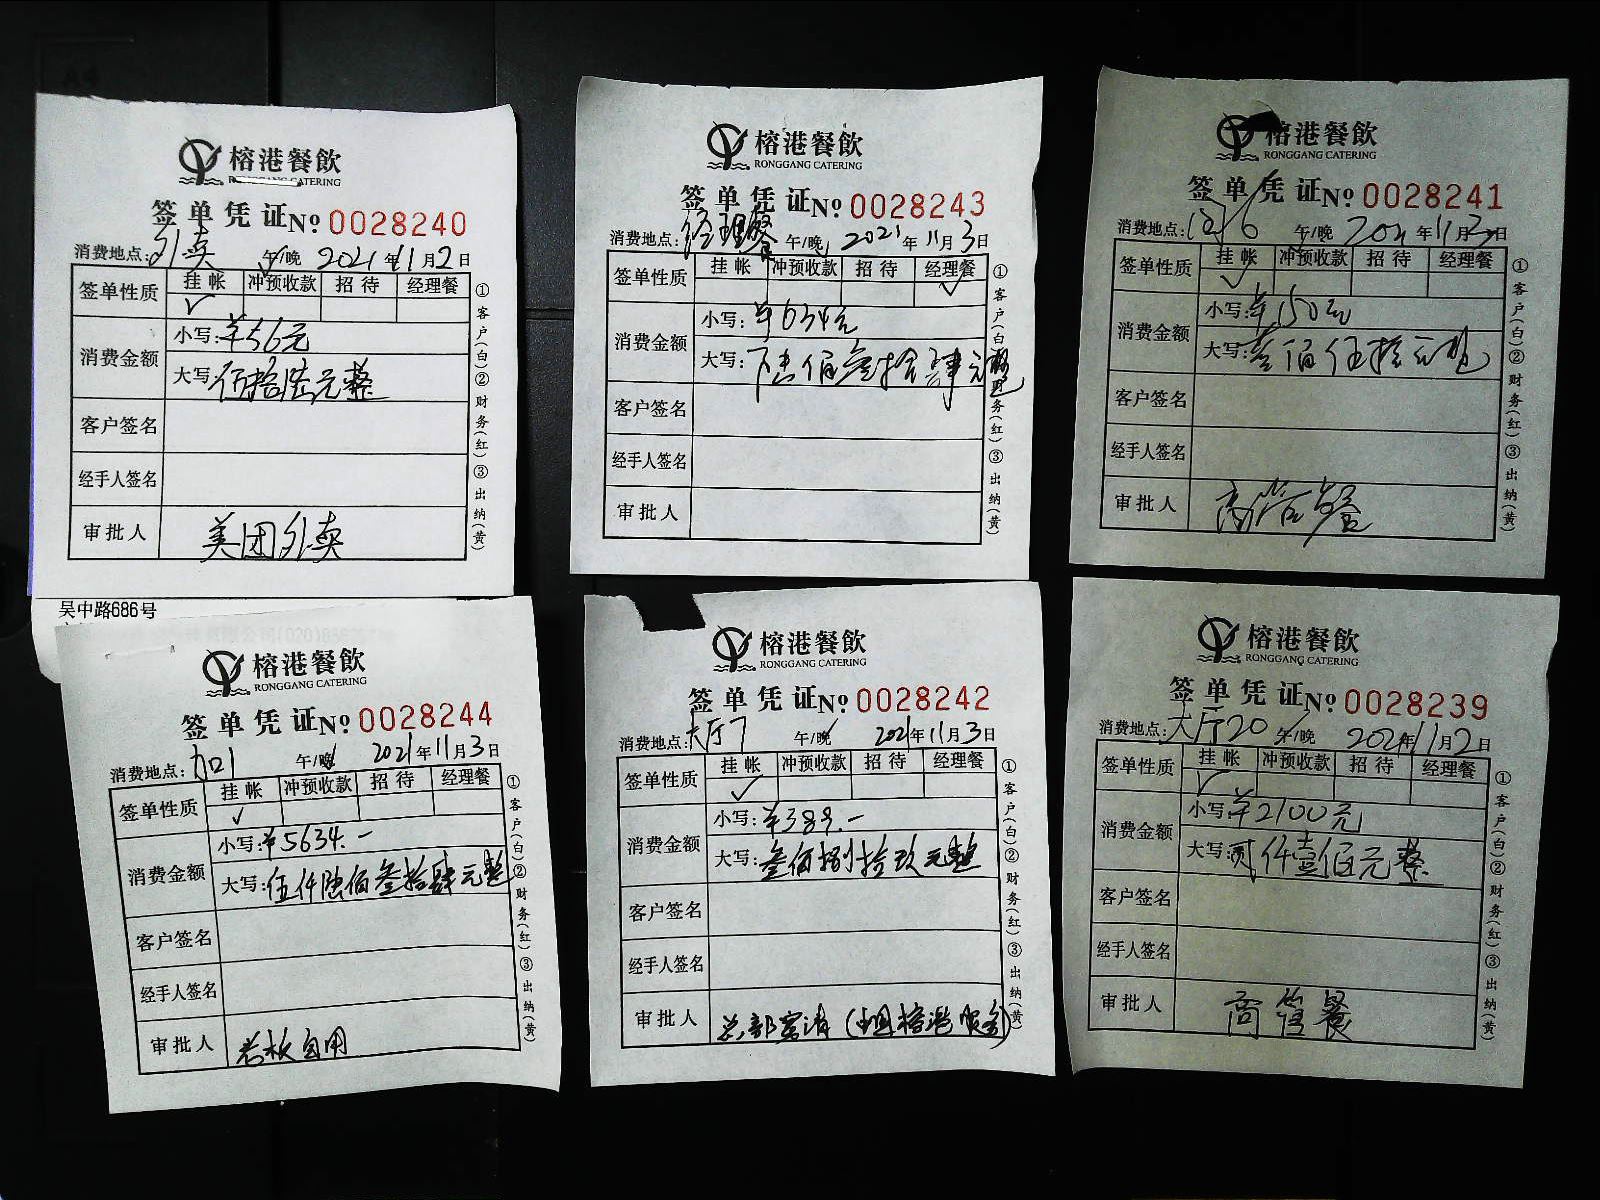 榕港餐飲
RONGGANG CATERING
签单凭证 No 0028240
消费地点: 外卖 午/晚 2021年11月2日
签单性质 挂帐 冲预收款 招待 经理餐
✓
消费金额 小写: ¥56元
大写: 伍拾陆元整
客户签名
经手人签名
审批人 美团外卖
①客户(白)②财务(红)③出纳(黄)
榕港餐飲
RONGGANG CATERING
签单凭证 No 0028243
消费地点: 经理餐 午/晚 2021年11月3日
签单性质 挂帐 冲预收款 招待 经理餐
✓
消费金额 小写: ¥634元
大写: 陆佰叁拾肆元整
客户签名
经手人签名
审批人
①客户(白)②财务(红)③出纳(黄)
榕港餐飲
RONGGANG CATERING
签单凭证 No 0028241
消费地点: 午/晚 2021年11月3日
签单性质 挂帐 冲预收款 招待 经理餐
✓
消费金额 小写: ¥150元
大写: 壹佰伍拾元整
客户签名
经手人签名
审批人 高管餐
①客户(白)②财务(红)③出纳(黄)
吴中路686号
榕港餐飲
RONGGANG CATERING
签单凭证 No 0028244
消费地点: 午/晚 2021年11月3日
签单性质 挂帐 冲预收款 招待 经理餐
✓
消费金额 小写: ¥5634.-
大写: 伍仟陆佰叁拾肆元整
客户签名
经手人签名
审批人 老板自用
①客户(白)②财务(红)③出纳(黄)
榕港餐飲
RONGGANG CATERING
签单凭证 No 0028242
消费地点: 大厅7 午/晚 2021年11月3日
签单性质 挂帐 冲预收款 招待 经理餐
✓
消费金额 小写: ¥389.-
大写: 叁佰捌拾玖元整
客户签名
经手人签名
审批人 总部宴请
①客户(白)②财务(红)③出纳(黄)
榕港餐飲
RONGGANG CATERING
签单凭证 No 0028239
消费地点: 大厅20 午/晚 2021年11月2日
签单性质 挂帐 冲预收款 招待 经理餐
✓
消费金额 小写: ¥2100元
大写: 贰仟壹佰元整
客户签名
经手人签名
审批人 高管餐
①客户(白)②财务(红)③出纳(黄)